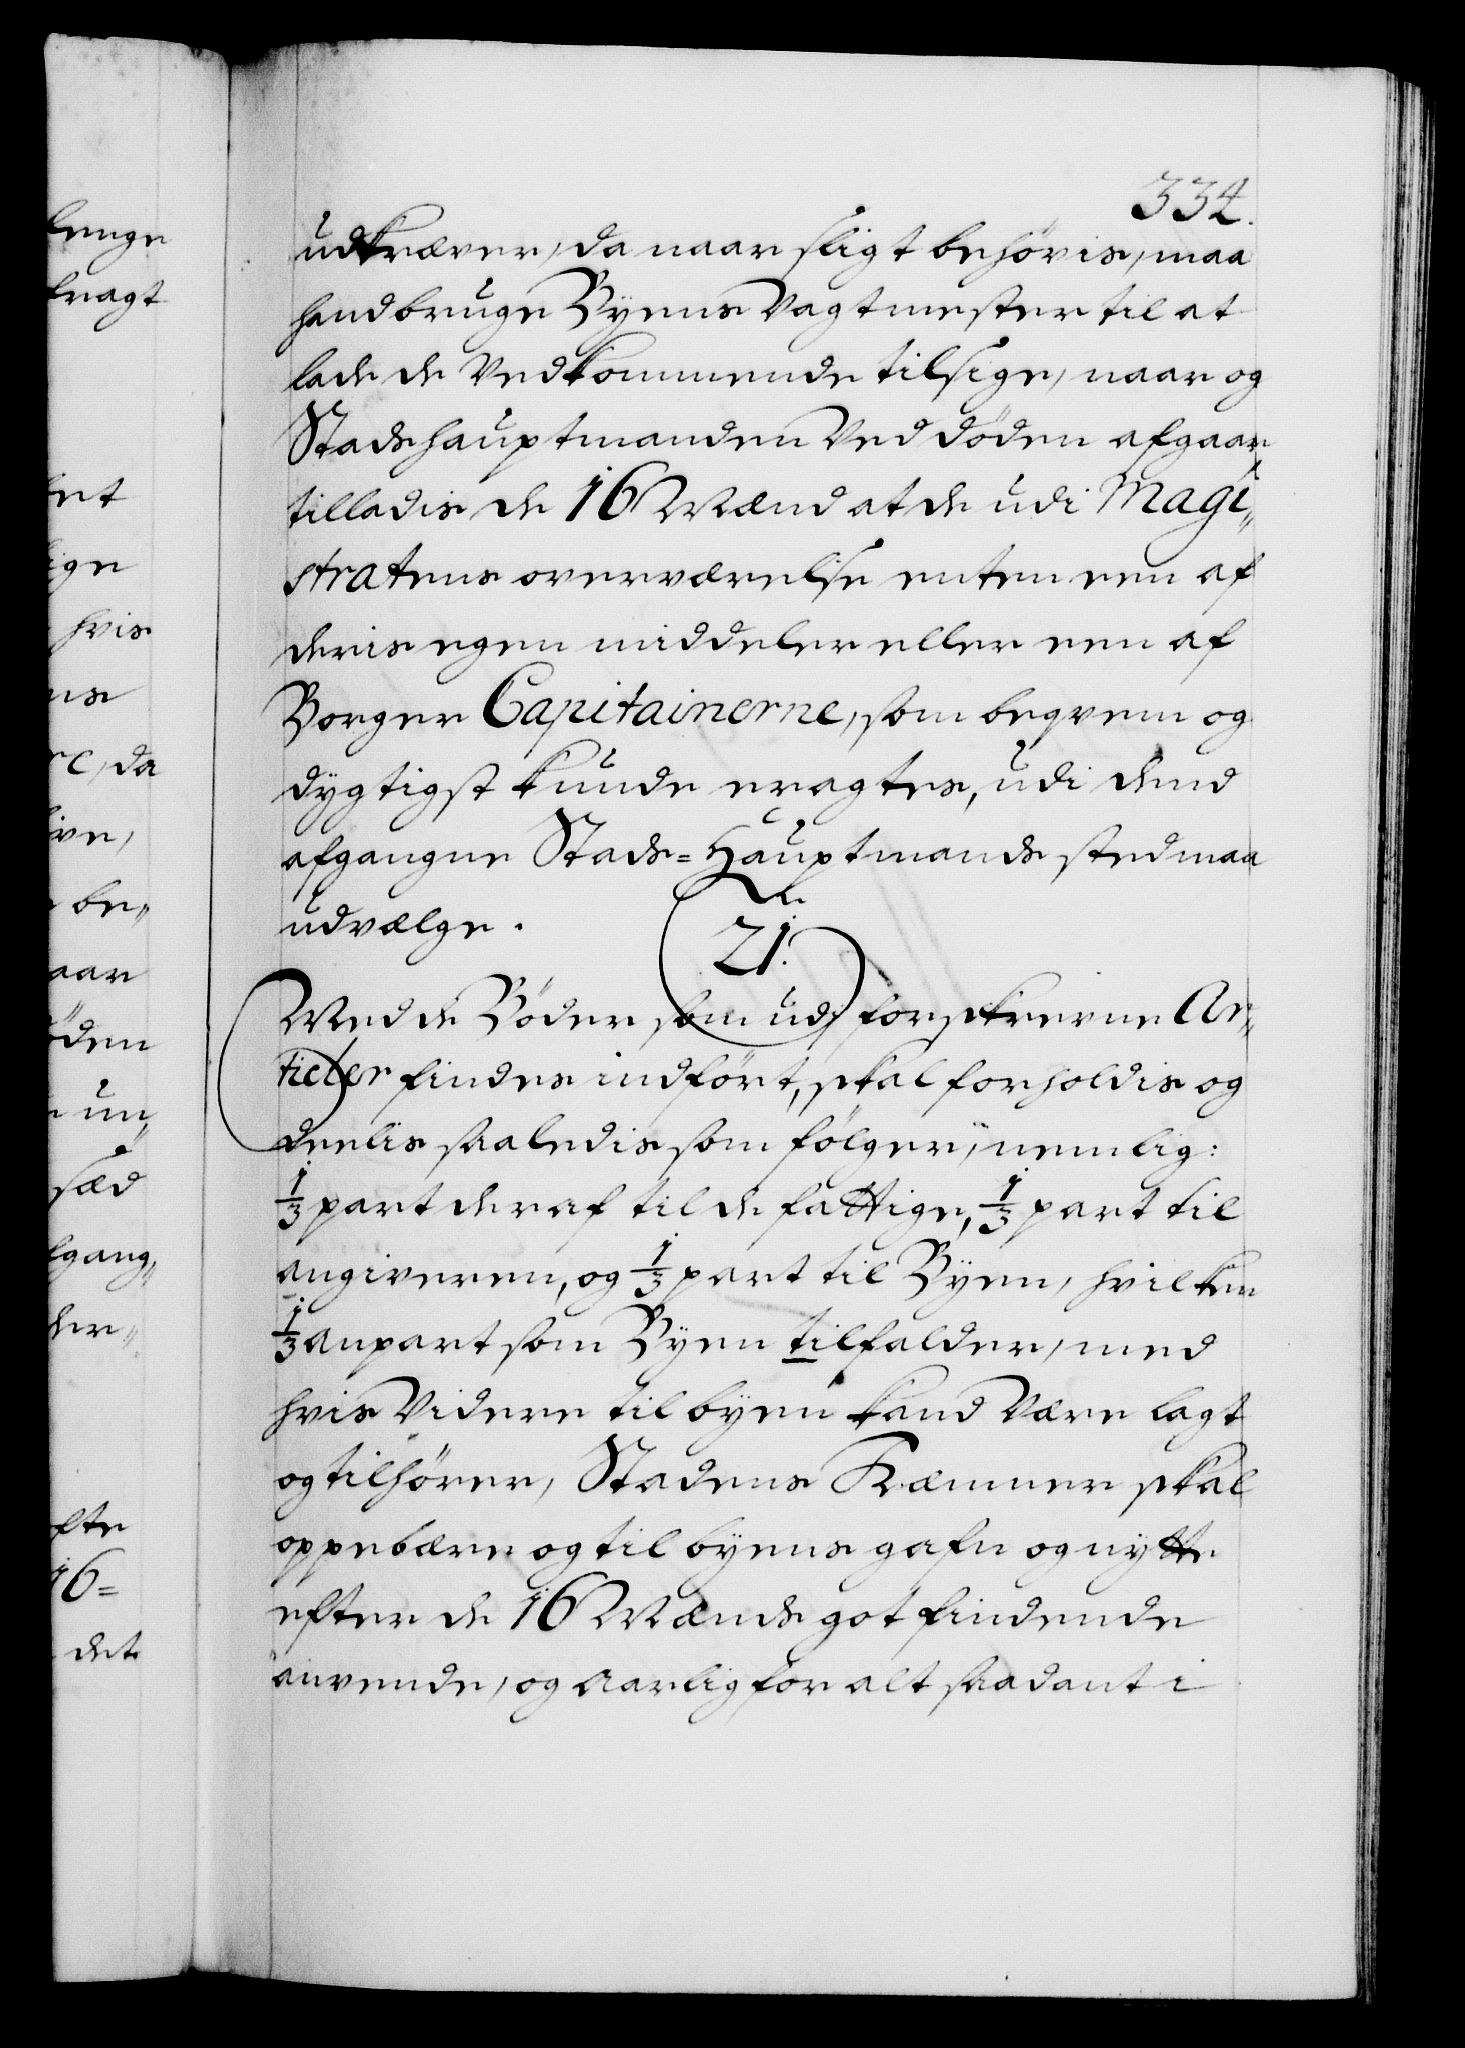 334.
udkræver, da naar sligt behövis, maa
hand bruge Byens Vagtmester til at
lade de Vedkommende tilsige, naar og
Stadshauptmanden Ved döden afgaar,
tilladis de 16 Mænd at de udi Magi„
stratens overværelse enten een af
deris egen middeler eller een af
Borger Capitainerne, som beqvem og
dygtigst kunde eragtes, udi dend
afgangne Stads=Hauptmands sted maa
udvælge.
21.
Med de Böder som udj forskrevne Ar„
ticler findes indfört, skal forholdis og
deelis saaledis som fölger, nemlig:
1/3 part deraf til de fattige, 1/3 part til
angiveren, og 1/3 part til Byen, hvilken
1/3 anpart som Byen tilfalder, med
hvis Videre til byen kand Være lagt
og tilhörer, Stadens Kæmner skal
oppebære og til byens gafn og nytte
efter de 16 Mænds got findende
anvende, og aarlig for alt saadant i
lenge
kragt
et
ige
hvis
ns
re, da
ive,
be„
aar
öden
un„
sæd
fgang„
der„
fte
16=
det